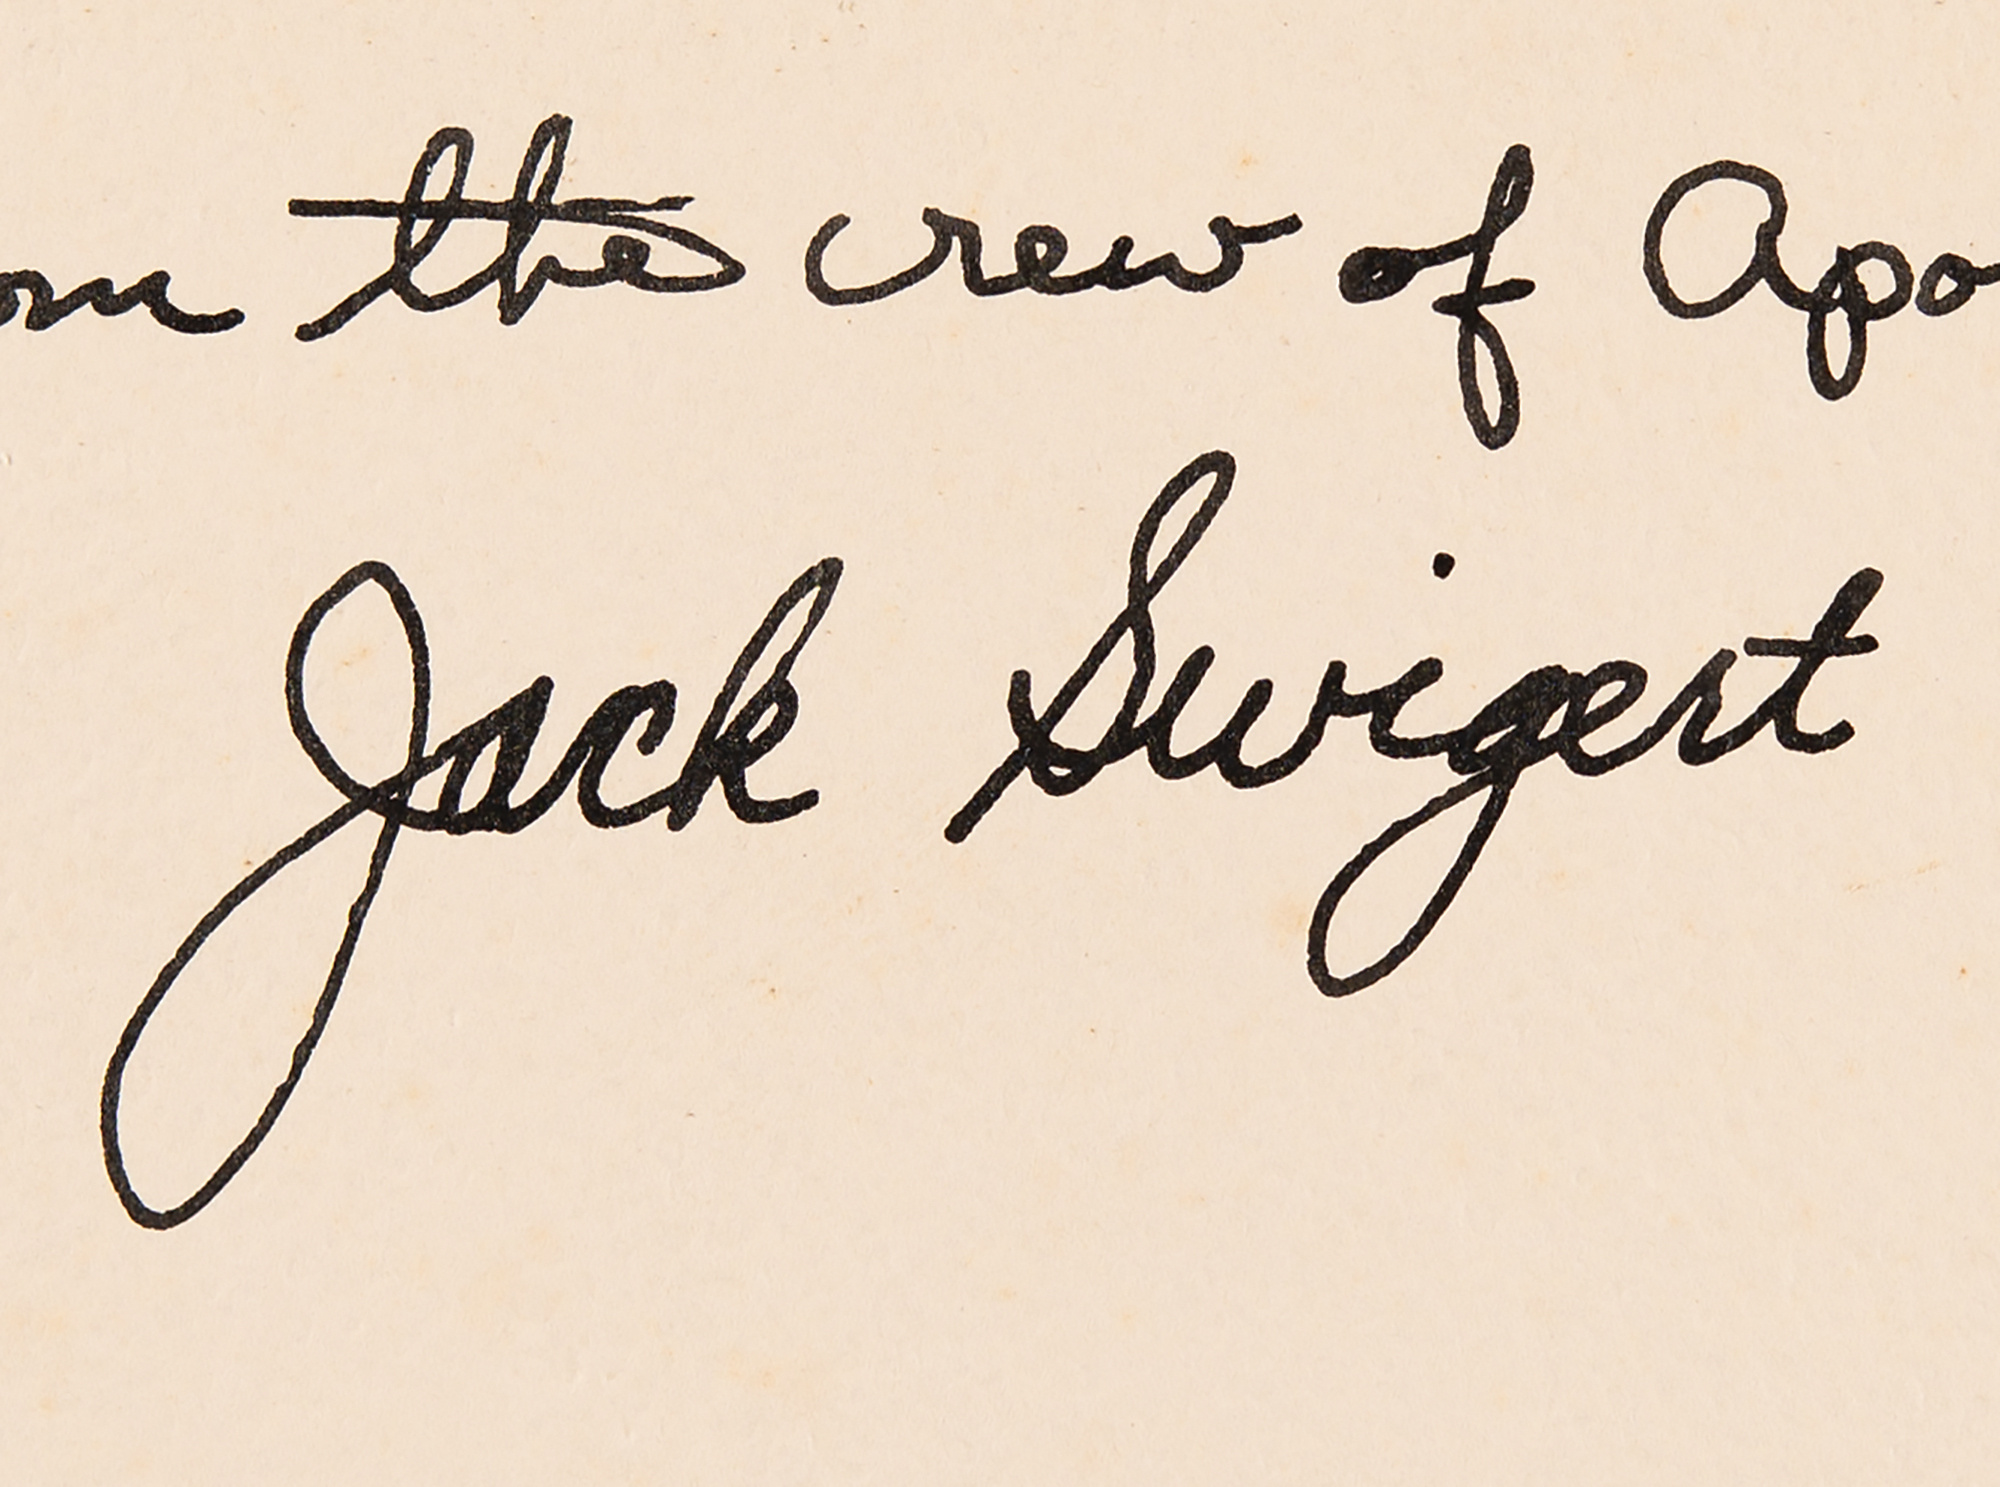 om the crew of Apo
Jack Swigert